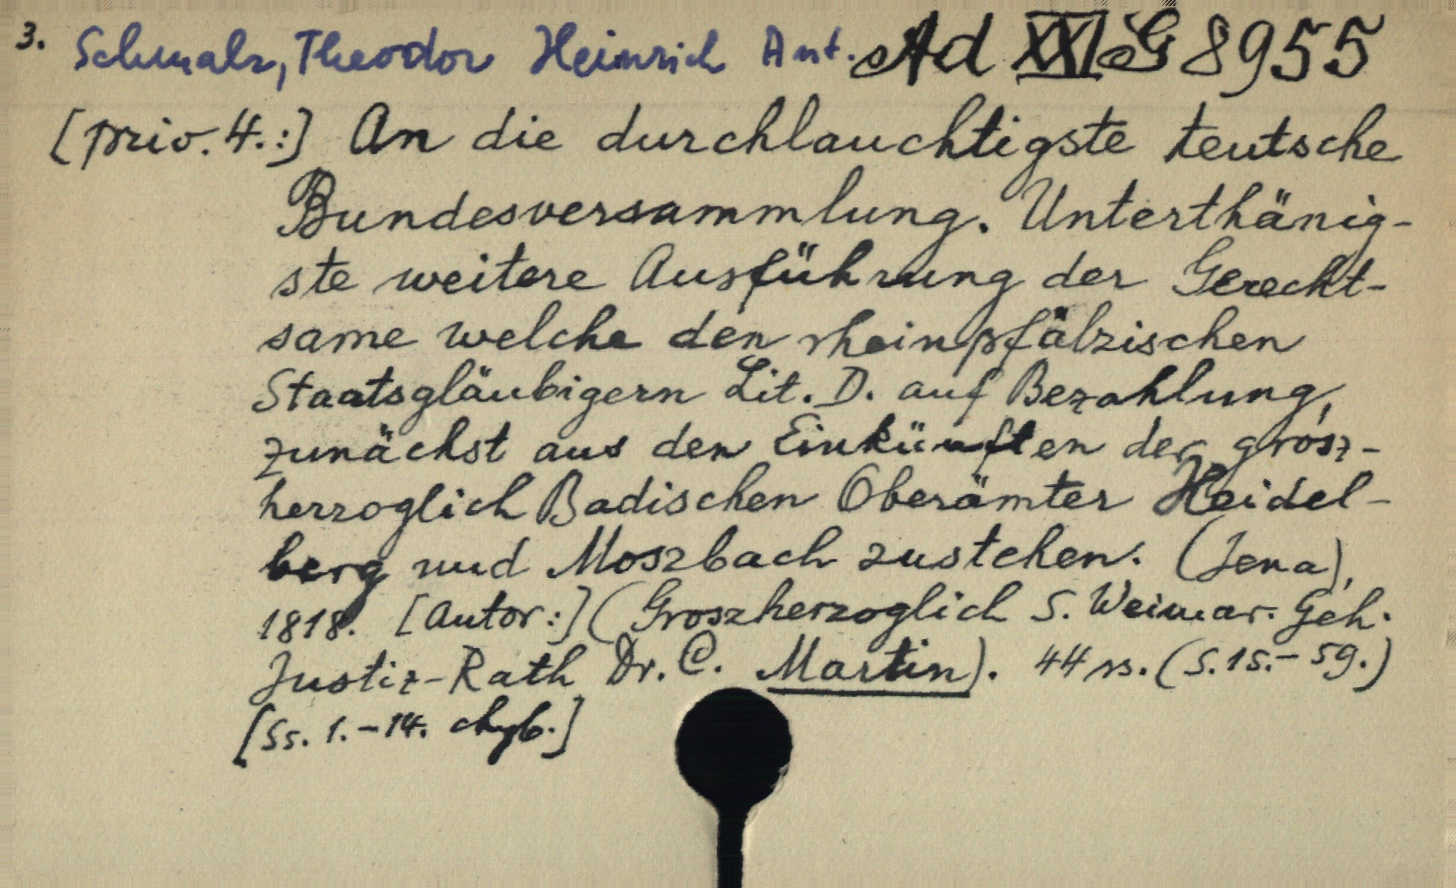 3. Schmalz, Theodor Heinrich Ant. Ad XXI G 8955
[priv. 4.:] An die durchlauchtigste teutsche
Bundesversammlung. Unterthänig-
ste weitere Ausführung der Gerecht-
same welche den rheinpfälzischen
Staatsgläubigern Lit. D. auf Bezahlung,
zunächst aus den Einkünften der grosz-
herzoglich Badischen Oberämter Heidel-
berg und Moszbach zustehen. (Jena),
1818. [Autor:] (Groszherzoglich S. Weimar. Geh.
Justiz-Rath Dr. C. Martin). 44 ss. (S. 15.-59.)
[Ss. 1.-14. chyb.]